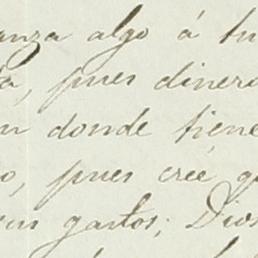 anza algo á tu
a, pues dinero
n donde tiene
o, pues cree q
sus gastos; Dios